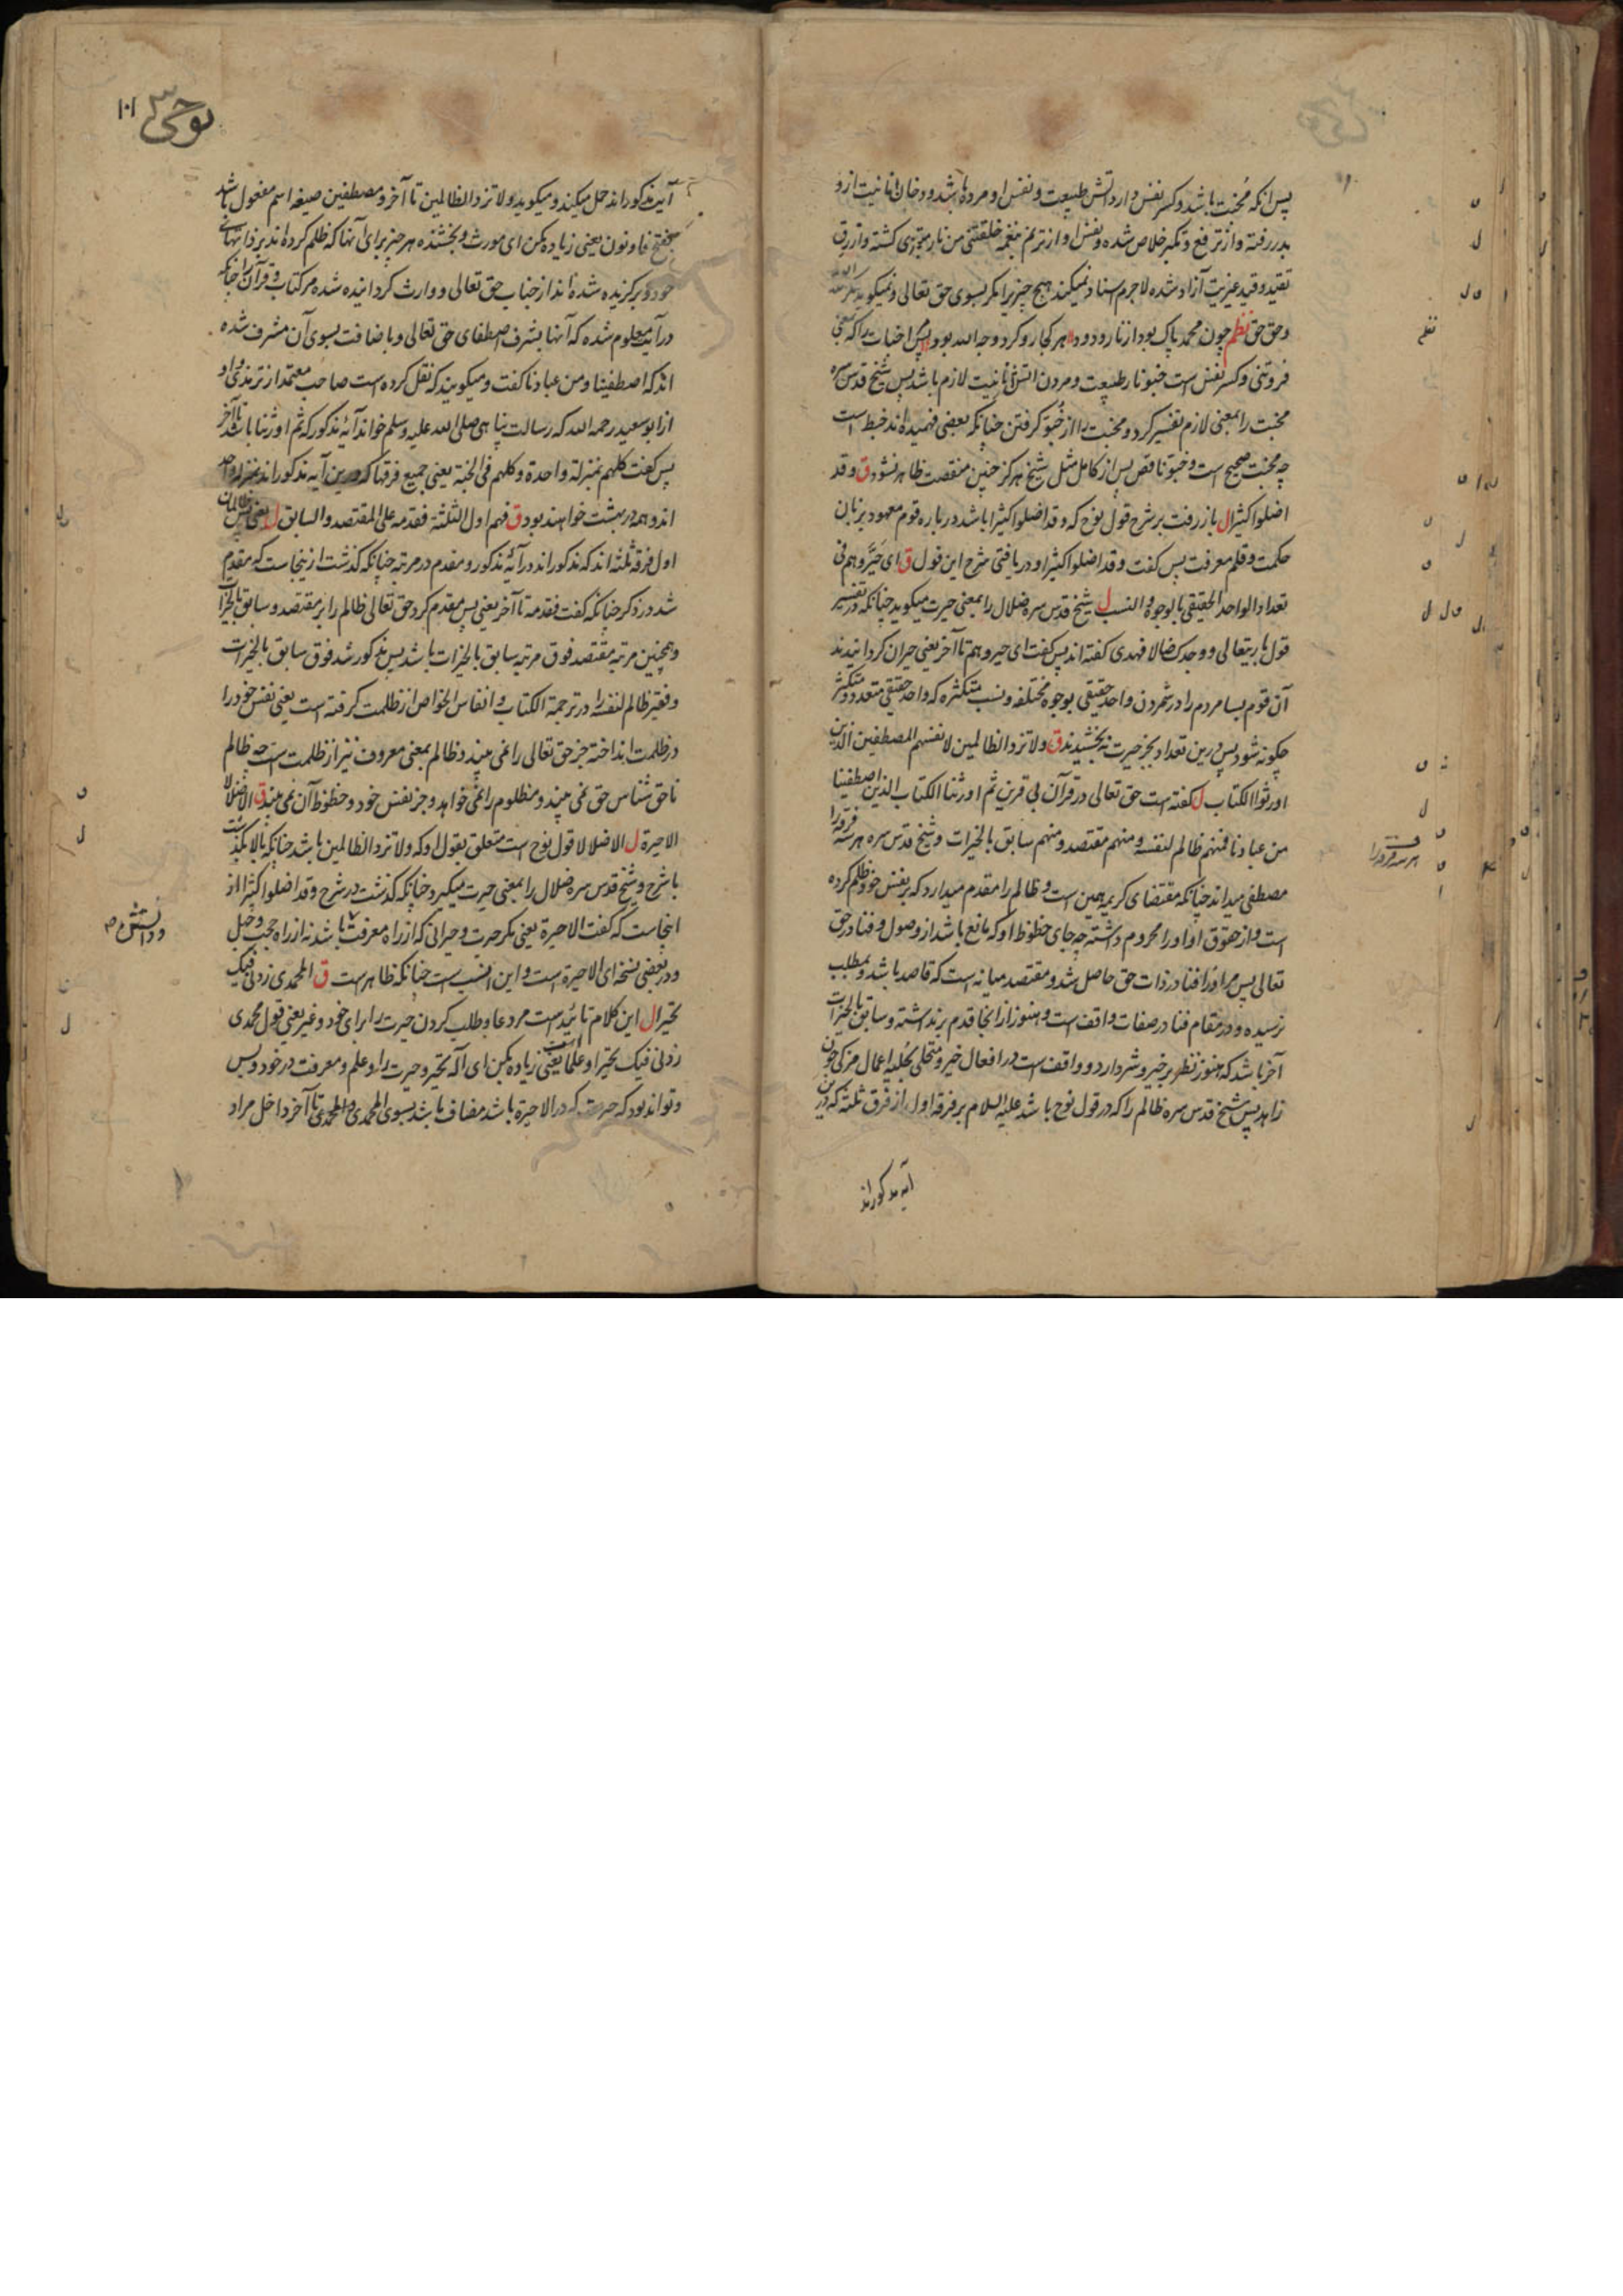 پس انکه مُخبت باشد و کسر نفس دارد اتش طبیعت و نفس او مرده باشد و دخان انانیت ازو
بدر رفته و از ترفع و تکبر خلاص شده و نفس او از ترنم بنغمه خلقتنی من نار متبری کشته و از رق
تقید و قید غیریت آزاد شده لاجرم اسناد نمیکند هیچ چیز را مکر بسوی حق تعالی و نمیکوید مکر
و حق حق نظم چون محمد پاک بود از نار و دود هر کجا رو کرد وجه الله بود پس اخبات را که
فروتنی و کسر نفس است خبو نار طبیعت و مردن اتش انانیت لازم باشد پس شیخ قدس سره
مخبت را بمعنی لازم تفسیر کرد و مخبت را از خُبَوّ کرفتن چنانکه بعضی فهمیده اند خبط است
چه مخبت صحیح است و خبو ناقص پس از کامل مثل شیخ هرکز چنین منقصت ظاهر نشود ق و قد
اضلوا کثیرا ل باز رفت بر شرح قول نوح که و قد اضلوا کثیرا باشد درباره قوم معهود بزبان
حکمت و قلم معرفت پس کفت و قد اضلوا کثیرا و دریافتی شرح این قول ق ای حَیَّرُوهم فی
تعداد الواحد الحقیقی بالوجوه و النسب ل شیخ قدس سره ضلال را بمعنی حیرت میکوید چنانکه در تفسیر
قول باریتعالی و وجدک ضالا فهدی کفته اند پس کفت ای حیروهم تا آخر یعنی حیران کردانیدند
آن قوم بسا مردم را در شمردن واحد حقیقی بوجوه مختلفه و نسب متکثره که واحد حقیقی متعدد و متکثر
چکونه شود پس درین تعداد بجز حیرت نه بخشیدند ق و لا تزد الظالمین لانفسهم المصطفین الذین
اورثوا الکتاب ل کفته است حق تعالی در قرآن بی قرین ثم اورثنا الکتاب الذین اصطفینا
من عبادنا فمنهم ظالم لنفسه و منهم مقتصد و منهم سابق بالخیرات و شیخ قدس سره هر سه فرقه را
مصطفی میداند چنانکه مقتضای کریمه همین است و ظالم را مقدم میدارد که بر نفس خود ظلم کرده
است و از حقوق او او را محروم داشته چه جای حظوظ او که مانع باشد از وصول و فنا در حق
تعالی پس مر او را فنا در ذات حق حاصل شد و مقتصد میانه است که قاصد باشد و بمطلب
نرسیده و در مقام فنا در صفات واقف است و هنوز از انجا قدم بر نداشته و سابق بالخیرات
آخر باشد که هنوز نظر بر خیر و شر دارد و واقف است در افعال خیر و متحلی بحلیه اعمال مزکی چون
زاهد پس شیخ قدس سره ظالم را که در قول نوح باشد علیه السلام بر فرقه اول از فرق ثلثه که درین
آیه مذکوراند
نظم
هر سه فرقه را
نوحی
۱۰۱
آیت مذکوراند حمل میکند و میکوید و لا تزد الظالمین تا آخر و مصطفین صیغه اسم مفعول باشد
بفتح فا و نون یعنی زیاده مکن ای مورث و بخشنده هر چیز برای آنها که ظلم کرده اند بر ذاتهای
خود و برکزیده شده اند از جناب حق تعالی و وارث کردانیده شده مر کتاب و قرآن را چنانکه
در آیت معلوم شده که آنها بشرف اصطفای حق تعالی و باضافت بسوی آن مشرف شده
اند که اصطفینا و من عبادنا کفت و میکویند که نقل کرده است صاحب معتمد از ترمذی و او
از ابو سعید رحمه الله که رسالت پناهی صلی الله علیه و سلم خواند آیۀ مذکور که ثم اورثنا باشد تا آخر
پس کفت کلهم بمنزلة واحدة و کلهم فی الجنة یعنی جمیع فرقها که درین آیه مذکوراند بمنزله واحد
اند و همه در بهشت خواهند بود ق فهم اول الثلثة فقدمه علی المقتصد و السابق ل یعنی پس ظالمان
اول فرقه ثلثه اند که مذکوراند در آیۀ مذکور و مقدم در مرتبه چنانکه کذشت از ینجاست که مقدم
شد در ذکر چنانکه کفت فقدمه تا آخر یعنی پس مقدم کرد حق تعالی ظالم را بر مقتصد و سابق بالخیرات
و همچنین مرتبه مقتصد فوق مرتبه سابق بالخیرات باشد پس مذکور شد فوق سابق بالخیرات
و فقیر ظالم لنفسه را در ترجمة الکتاب و انفاس الخواص از ظلمت کرفته است یعنی نفس خود را
در ظلمت انداخته جز حق تعالی را نمی بیند و ظالم بمعنی معروف نیز از ظلمت است چه ظالم
ناحق شناس حق نمی بیند و مظلوم را نمی خواهد و جز نفس خود و حظوظ آن نمی بیند ق الا ضلالا
الا حیرة ل الا ضلالا قول نوح است متعلق بقول او که و لا تزد الظالمین باشد چنانکه بالا کذشت
با شرح و شیخ قدس سره ضلال را بمعنی حیرت میکیرد چنانکه کذشت در شرح و قد اضلوا کثیرا از
انجاست که کفت الا حیرة یعنی مکر حیرت و حیرانی که از راه معرفت باشد نه از راه حجب و جهل
و در بعضی نسخه ای الا حیرة است و این انسب است چنانکه ظاهر است ق المحمدی زدنی فیک
تحیرا ل این کلام تائید است مر دعا و طلب کردن حیرت را برای خود و غیر یعنی قول محمدی
زدنی فیک تحیرا و علما است یعنی زیاده بکن ای اله تحیر و حیرت را و علم و معرفت در خود و بس
و تواند بود که حیرت که در الا حیرة باشد مضاف باشد بسوی المحمدی و المحمدی تا آخر داخل مراد